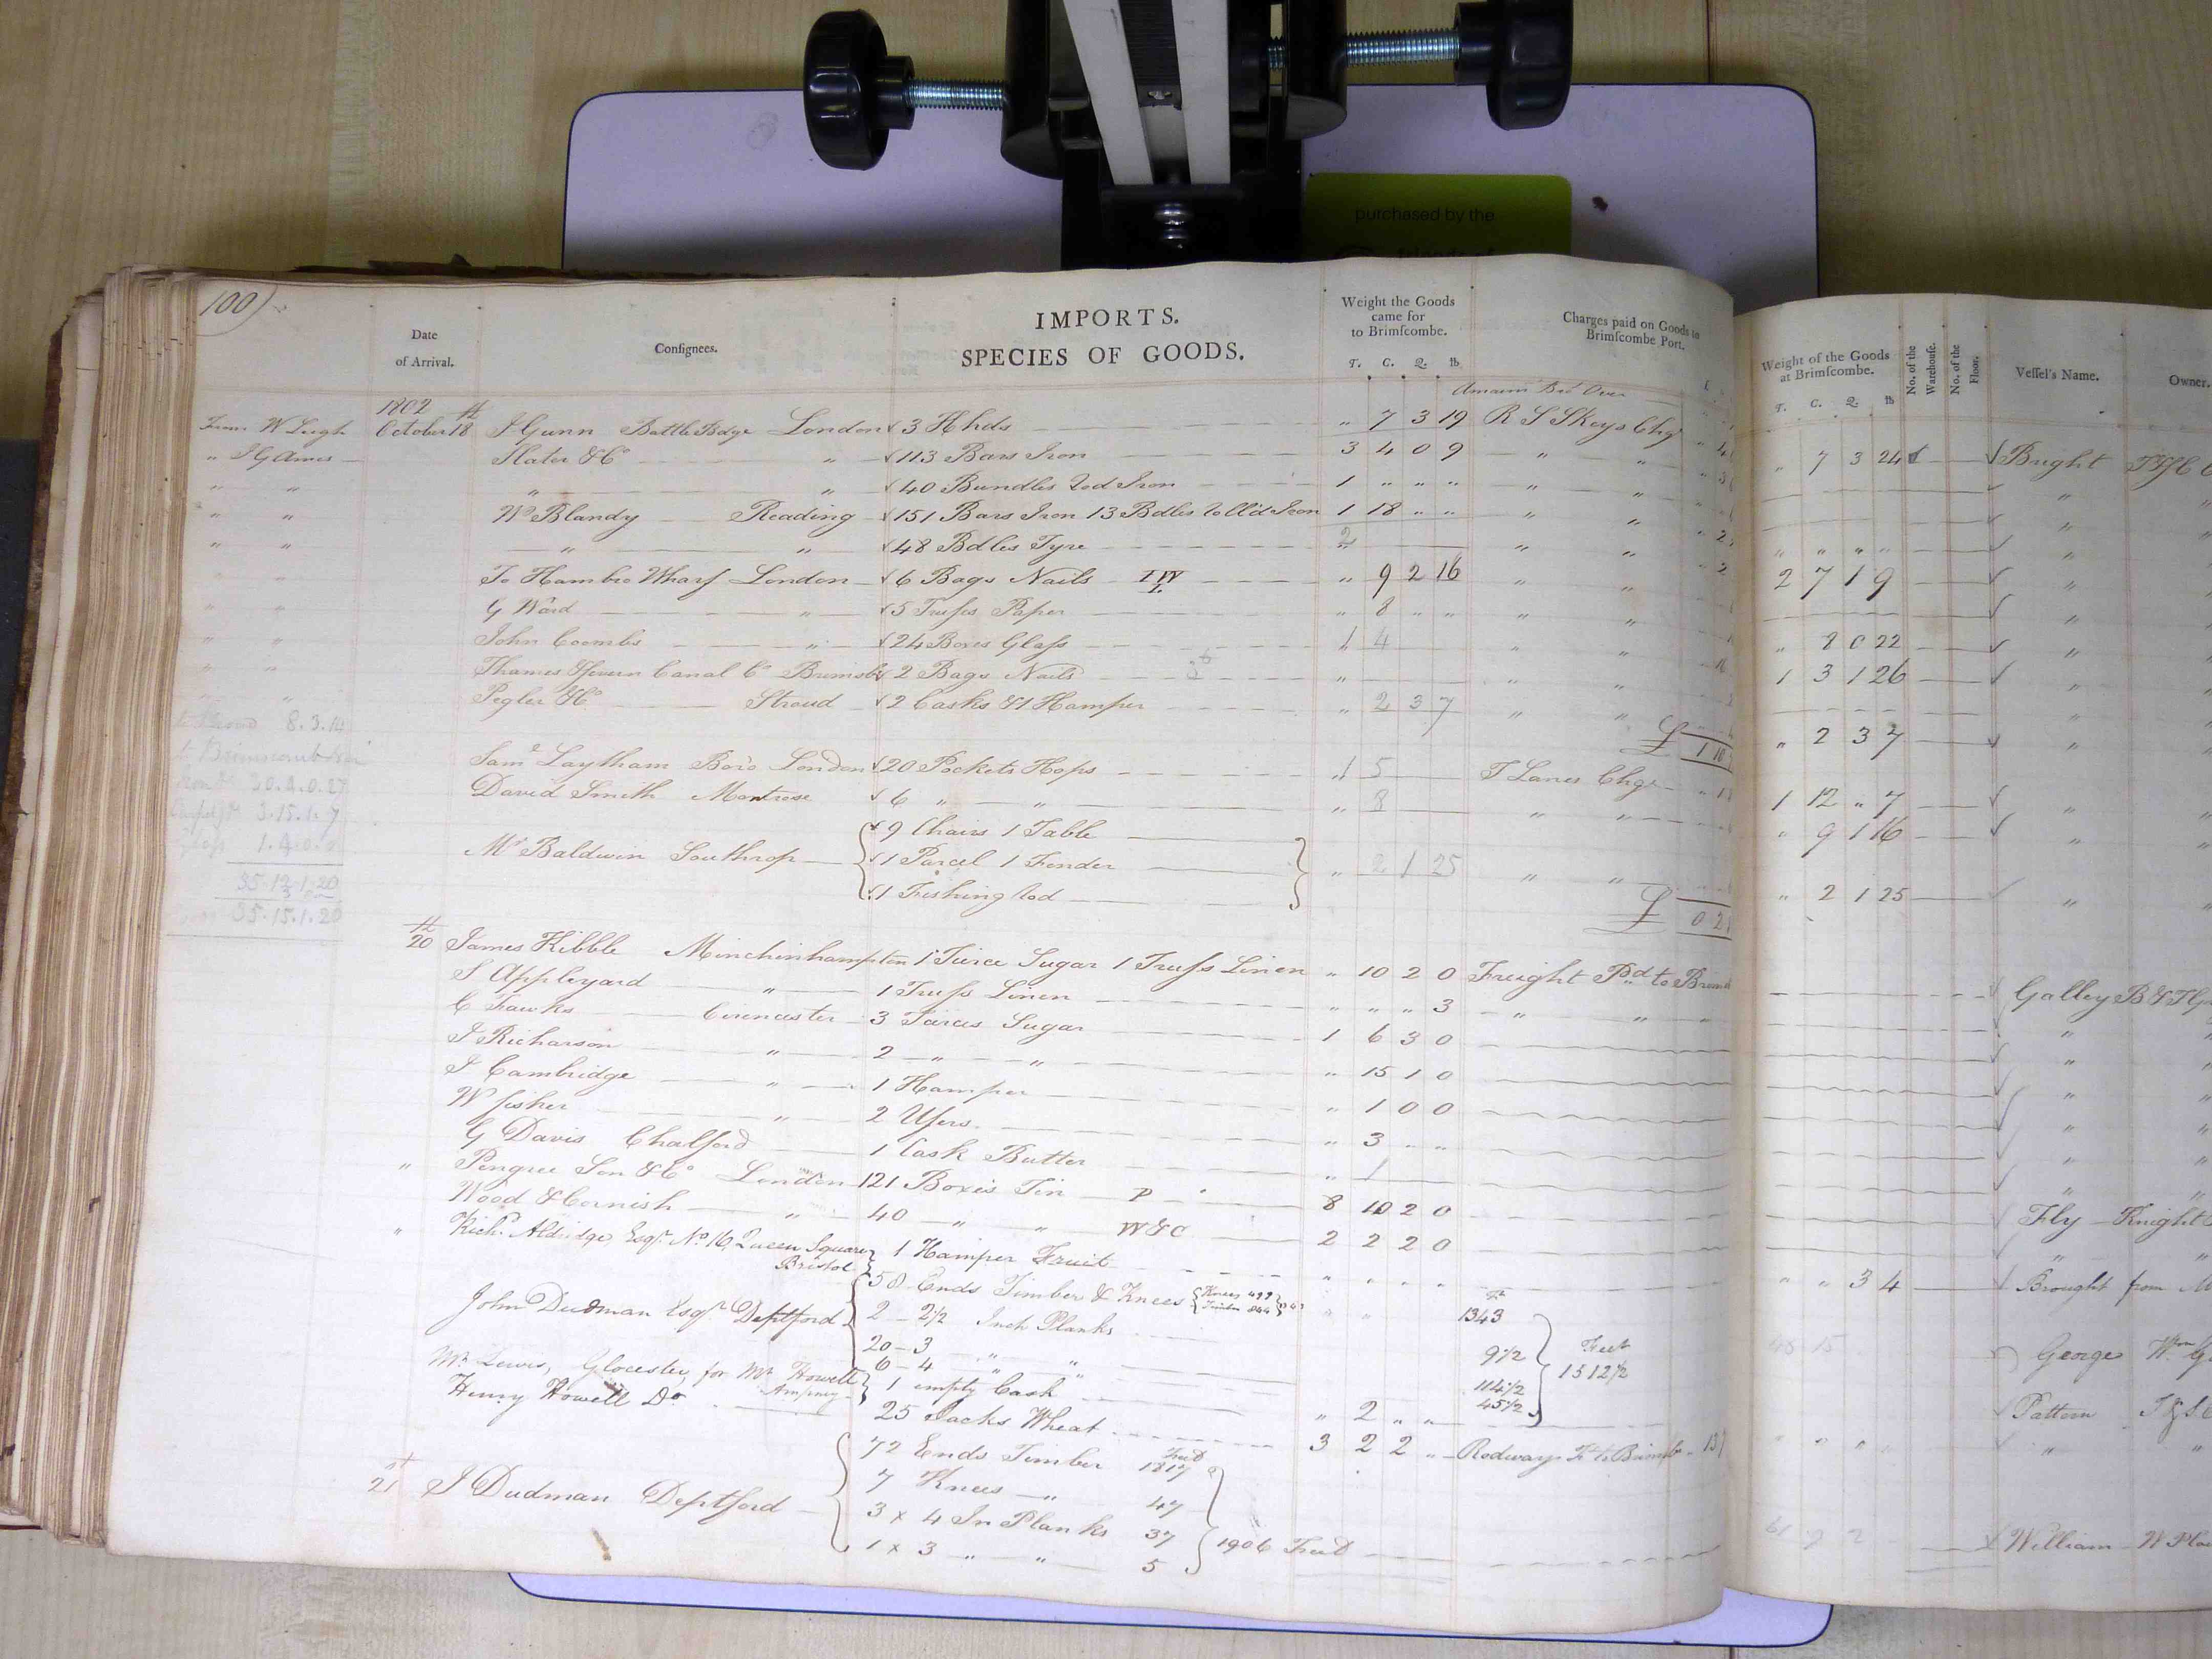 purchased by the
100)
Date
of Arrival.
Consignees.
IMPORTS.
SPECIES OF GOODS.
Weight the Goods
came for
to Brimscombe.
T. C. Q. lb
Charges paid on Goods to
Brimscombe Port.
Weight of the Goods
at Brimscombe.
T. C. Q. lb
No. of the Warehouse.
No. of the Floor.
Vessel's Name.
Owner.
1802 Amount Bro Over
From W Leigh October 18th J Gunn Battle Bdge London 3 Hhds " 7 3 19 R S Skeys Chgs " 7 3 24 Bright
" J G Ames Slater & Co " 113 Bars Iron 3 4 0 9 " " "
" " " " 40 Bundles Rod Iron 1 " " " " " "
" " Wm Blandy Reading 151 Bars Iron 13 Bdles Roll'd Iron 1 18 " " " " " " " " "
" " " " 48 Bdles Tyre 2 " " 2 7 1 9 "
" " To Hambro Wharf London 6 Bags Nails IW " 9 2 16 " " "
" " G Ward " 5 Truss Paper " 8 " " " " " 8 0 22 "
" " John Coombs " 24 Boxes Glass 1 4 " " 1 3 1 26 "
" " Thames & Severn Canal Co Brimsbe 2 Bags Nails " " " "
" " Pegler & Co Stroud 2 Casks & 1 Hamper " 2 3 7 " " " 2 3 7 "
8.3.14
£ 1 18
Saml Laytham Boro London 20 Pockets Hops 1 5 T Lanes Chgs 1 12 " 7 "
30.4.0.27
David Smith Montrose 6 " " " 8 " " " 9 1 16 "
3.15.1.7
1.4.0.0
9 Chairs 1 Table
Mr Baldwin Southrop 1 Parcel 1 Fender " 2 1 25 " " " 2 1 25 "
1 Fishing Rod
35.15.1.20
£ 0 2
20th James Kibble Minchinhampton 1 Tierce Sugar 1 Truss Linen " 10 2 0 Freight Pd to Brims Galley
S Appleyard " 1 Truss Linen " " " 3 " " " "
C Fawks Cirencaster 3 Tierces Sugar 1 6 3 0 "
J Richarson " 2 " " " 15 1 0 "
J Cambridge " 1 Hamper " 1 0 0 "
W fisher " 2 " 3 " " "
G Davis Chalford 1 Cask Butter " 1 "
" Pengree Son & Co London 121 Boxes Tin P 8 10 2 0 Fly Knight
Wood & Cornish " 40 " " W&C 2 2 2 0 "
" Richd Aldridge Esqr No 16, Queen Square Bristol 1 Hamper Fruit " " " " " " 3 4 Brought from
58 Ends Timber & Knees Knees 499 Timber 844 1343
John Dudman Esqr Deptford 2 - 2½ Inch Planks 9½ Feet George Wm
20 - 3 " " 114½ 1512½
6 - 4 " " 45½
Mr Lewis, Glocester, for Mr Howell Ampney 1 empty Cask " 2 " " Pattern
Henry Howell Do 25 Sacks Wheat 3 2 2 " Rodways Ft to Brimbe "
72 Ends Timber Feet 1817
7 Knees " 47
21st J Dudman Deptford 3 x 4 In Planks 37 1906 Feet 61 9 2 William
1 x 3 " " 5